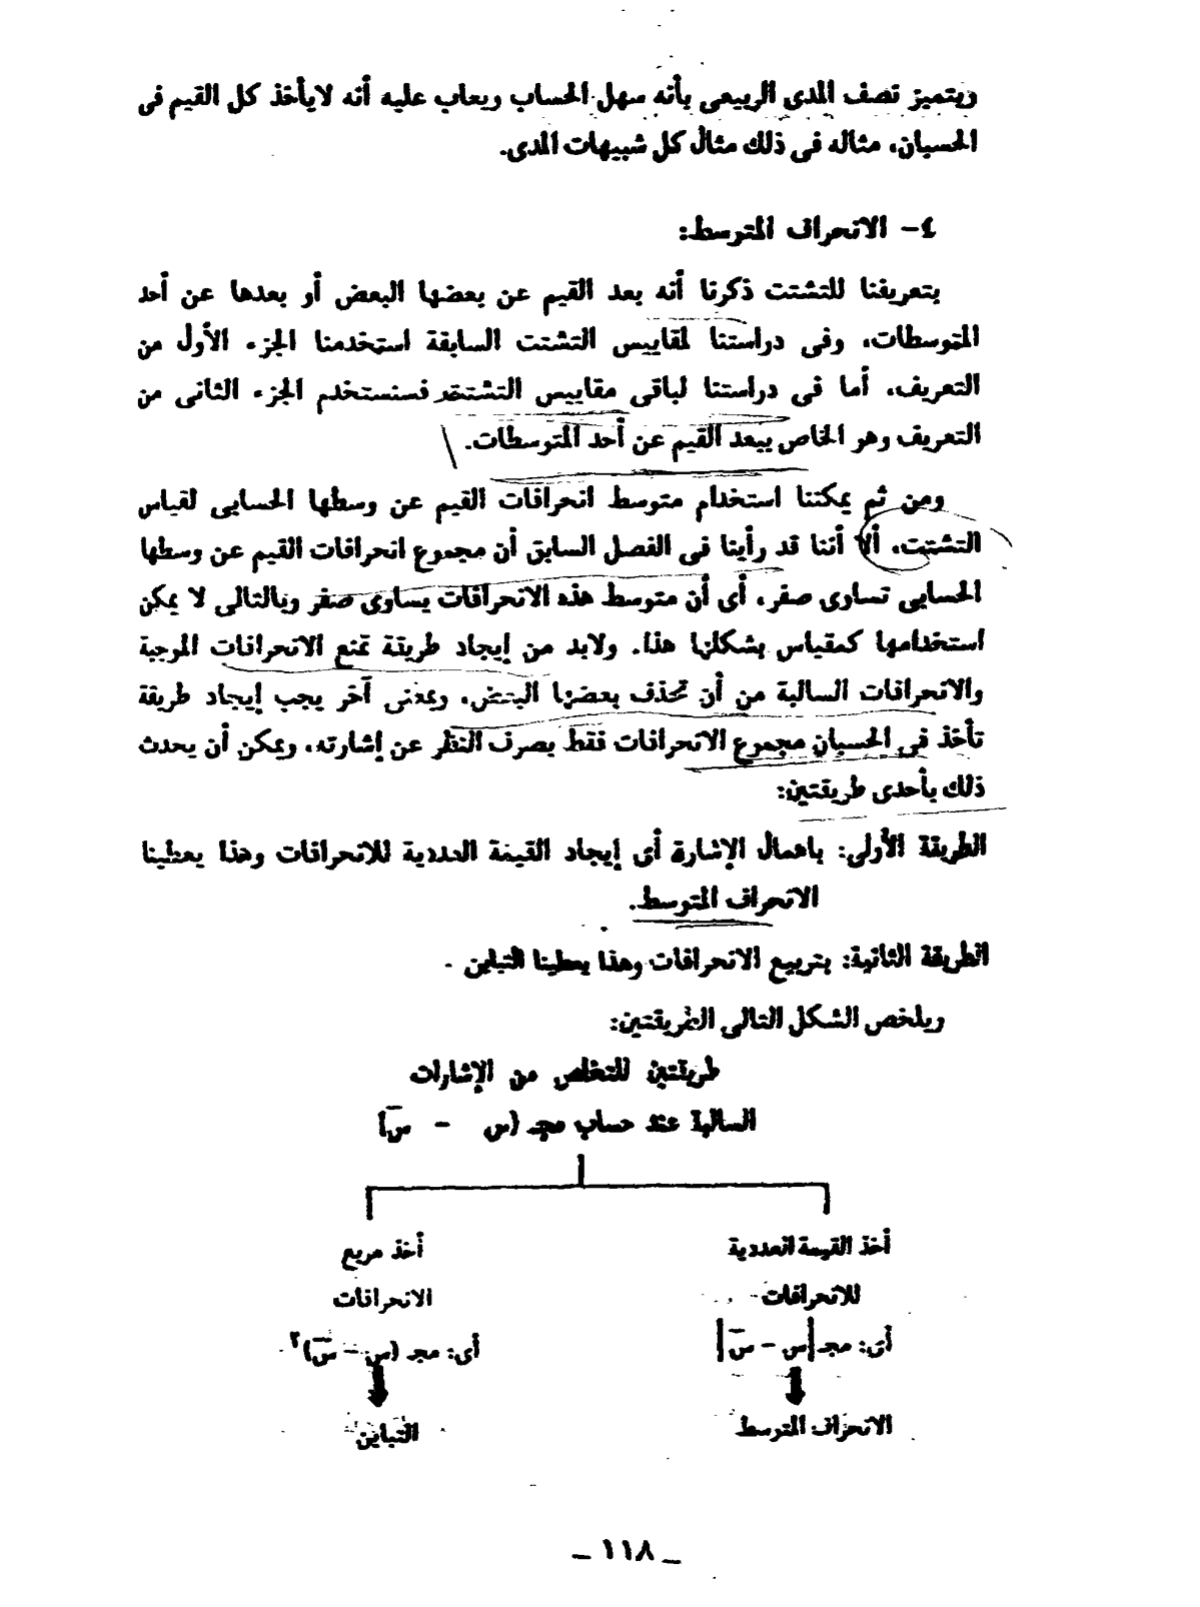 ويتميز نصف المدى الربيعى بأنه سهل الحساب ويعاب عليه أنه لايأخذ كل القيم فى
الحسبان، مثاله فى ذلك مثال كل شبيهات المدى.
٤- الانحراف المتوسط:
بتعريفنا للتشتت ذكرنا أنه بعد القيم عن بعضها البعض أو بعدها عن أحد
المتوسطات، وفى دراستنا لمقاييس التشتت السابقة استخدمنا الجزء الأول من
التعريف، أما فى دراستنا لباقى مقاييس التشتت فسنستخدم الجزء الثانى من
التعريف وهو الخاص ببعد القيم عن أحد المتوسطات.
ومن ثم يمكننا استخدام متوسط انحرافات القيم عن وسطها الحسابى لقياس
التشتت، ألا أننا قد رأينا فى الفصل السابق أن مجموع انحرافات القيم عن وسطها
الحسابى تساوى صفر، أى أن متوسط هذه الانحرافات يساوى صفر وبالتالى لا يمكن
استخدامها كمقياس بشكلها هذا. ولابد من إيجاد طريقة تمنع الانحرافات الموجبة
والانحرافات السالبة من أن تحذف بعضها البعض، وبمعنى آخر يجب إيجاد طريقة
تأخذ فى الحسبان مجموع الانحرافات فقط بصرف النظر عن إشارته، ويمكن أن يحدث
ذلك بأحدى طريقتين:
الطريقة الأولى: باهمال الإشارة أى إيجاد القيمة العددية للانحرافات وهذا يعطينا
الانحراف المتوسط.
الطريقة الثانية: بتربيع الانحرافات وهذا يعطينا التباين .
ويلخص الشكل التالى الطريقتين:
طريقتين للتخلص من الإشارات
السالبة عند حساب مجـ (س - س̄)
أخذ القيمة العددية
للانحرافات
أى: مجـ |س - س̄|
الانحراف المتوسط
أخذ مربع
الانحرافات
أى: مجـ (س - س̄)٢
التباين
_ ١١٨ _